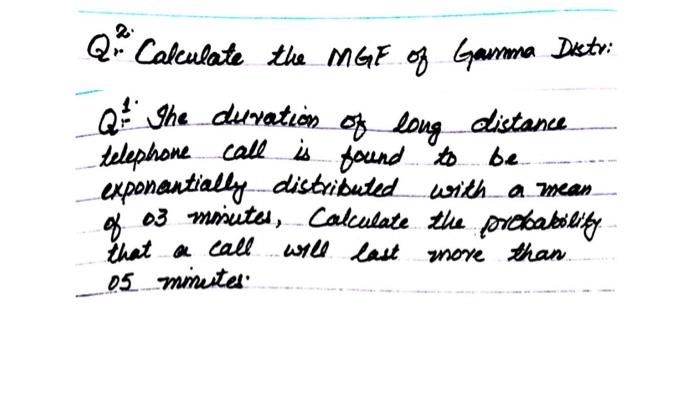 Q:- 2. Calculate the MGF of Gamma Distr:
Q:- 1. The duration of long distance
telephone call is found to be
exponantially distributed with a mean
of 03 minutes, Calculate the probability
that a call will last more than
05 minutes.